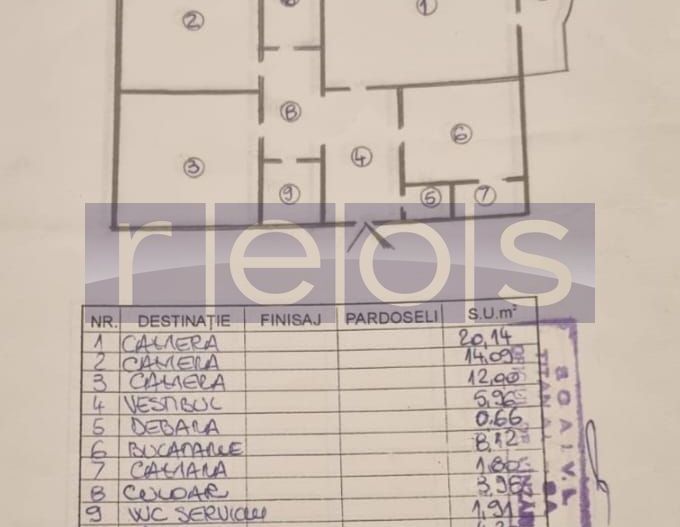 1
2
8
6
4
3
9
5
7
reos
NR. DESTINAȚIE FINISAJ PARDOSELI S.U.m²
1 CAMERA 20,14
2 CAMERA 14,09
3 CAMERA 12,00
4 VESTIBUL 5,96
5 DEBARA 0,66
6 BUCATARIE 8,12
7 CAMARA 1,80
8 CULOAR 3,96
9 WC SERVICIU 1,91